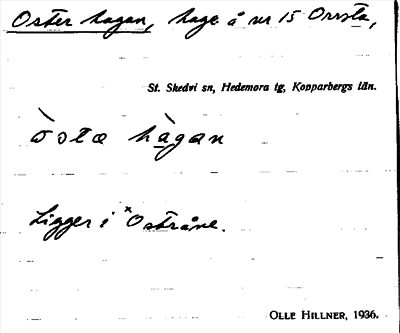 Öster hagan, hage å nr 15 Orrsta,
St. Skedvi sn, Hedemora tg, Kopparbergs län.
ö̀sta hàgan
Ligger i ˣOstråne.
OLLE HILLNER, 1936.